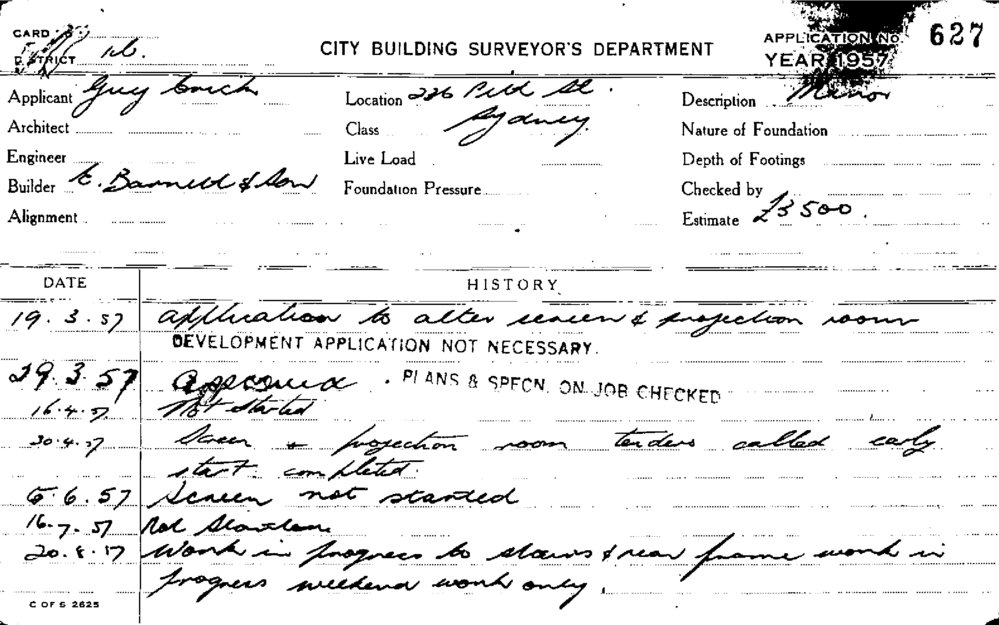 CARD
DISTRICT
CITY BUILDING SURVEYOR'S DEPARTMENT
APPLICATION No. 627
YEAR 1957
Applicant Guy
Location 226 Pitt St.
Description Minor
Architect
Class Sydney.
Nature of Foundation
Engineer
Live Load
Depth of Footings
Builder E. Barnett & Son
Foundation Pressure
Checked by
Alignment
Estimate £3500.
DATE HISTORY
19.3.57 application to alter screen & projection room
DEVELOPMENT APPLICATION NOT NECESSARY.
29.3.57 approved . PLANS & SPECN. ON JOB CHECKED
16.4.57. Not Started
30.4.57 Screen & projection room tenders called early
start. completed.
5.6.57 Screen not started
16.7.57 Not
20.8.57 Work in progress to stairs & rear frame work in
progress weekend work only.
C OF S 2625